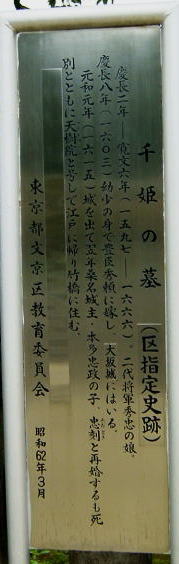 千姫の墓(区指定史跡)
慶長二年――寛文六年(一五九七――一六六六)。二代将軍秀忠の娘。
慶長八年(一六〇三)幼少の身で豊臣秀頼に嫁し、大坂城にはいる。
元和元年(一六一五)城を出て翌年桑名城主・本多忠政の子、忠刻と再婚するも死
別とともに天樹院と号して江戸に帰り竹橋に住む。
東京都文京区教育委員会
昭和62年3月